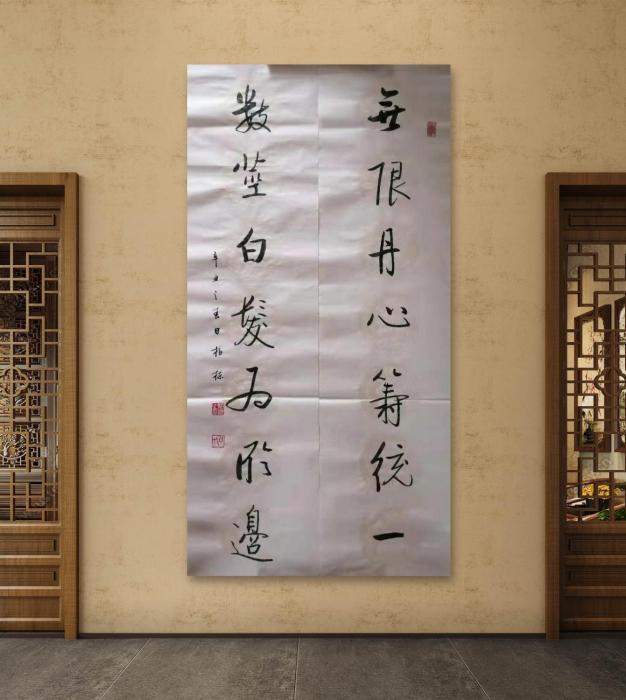 無限丹心籌統一
數莖白髮為防邊
辛丑之春日柏